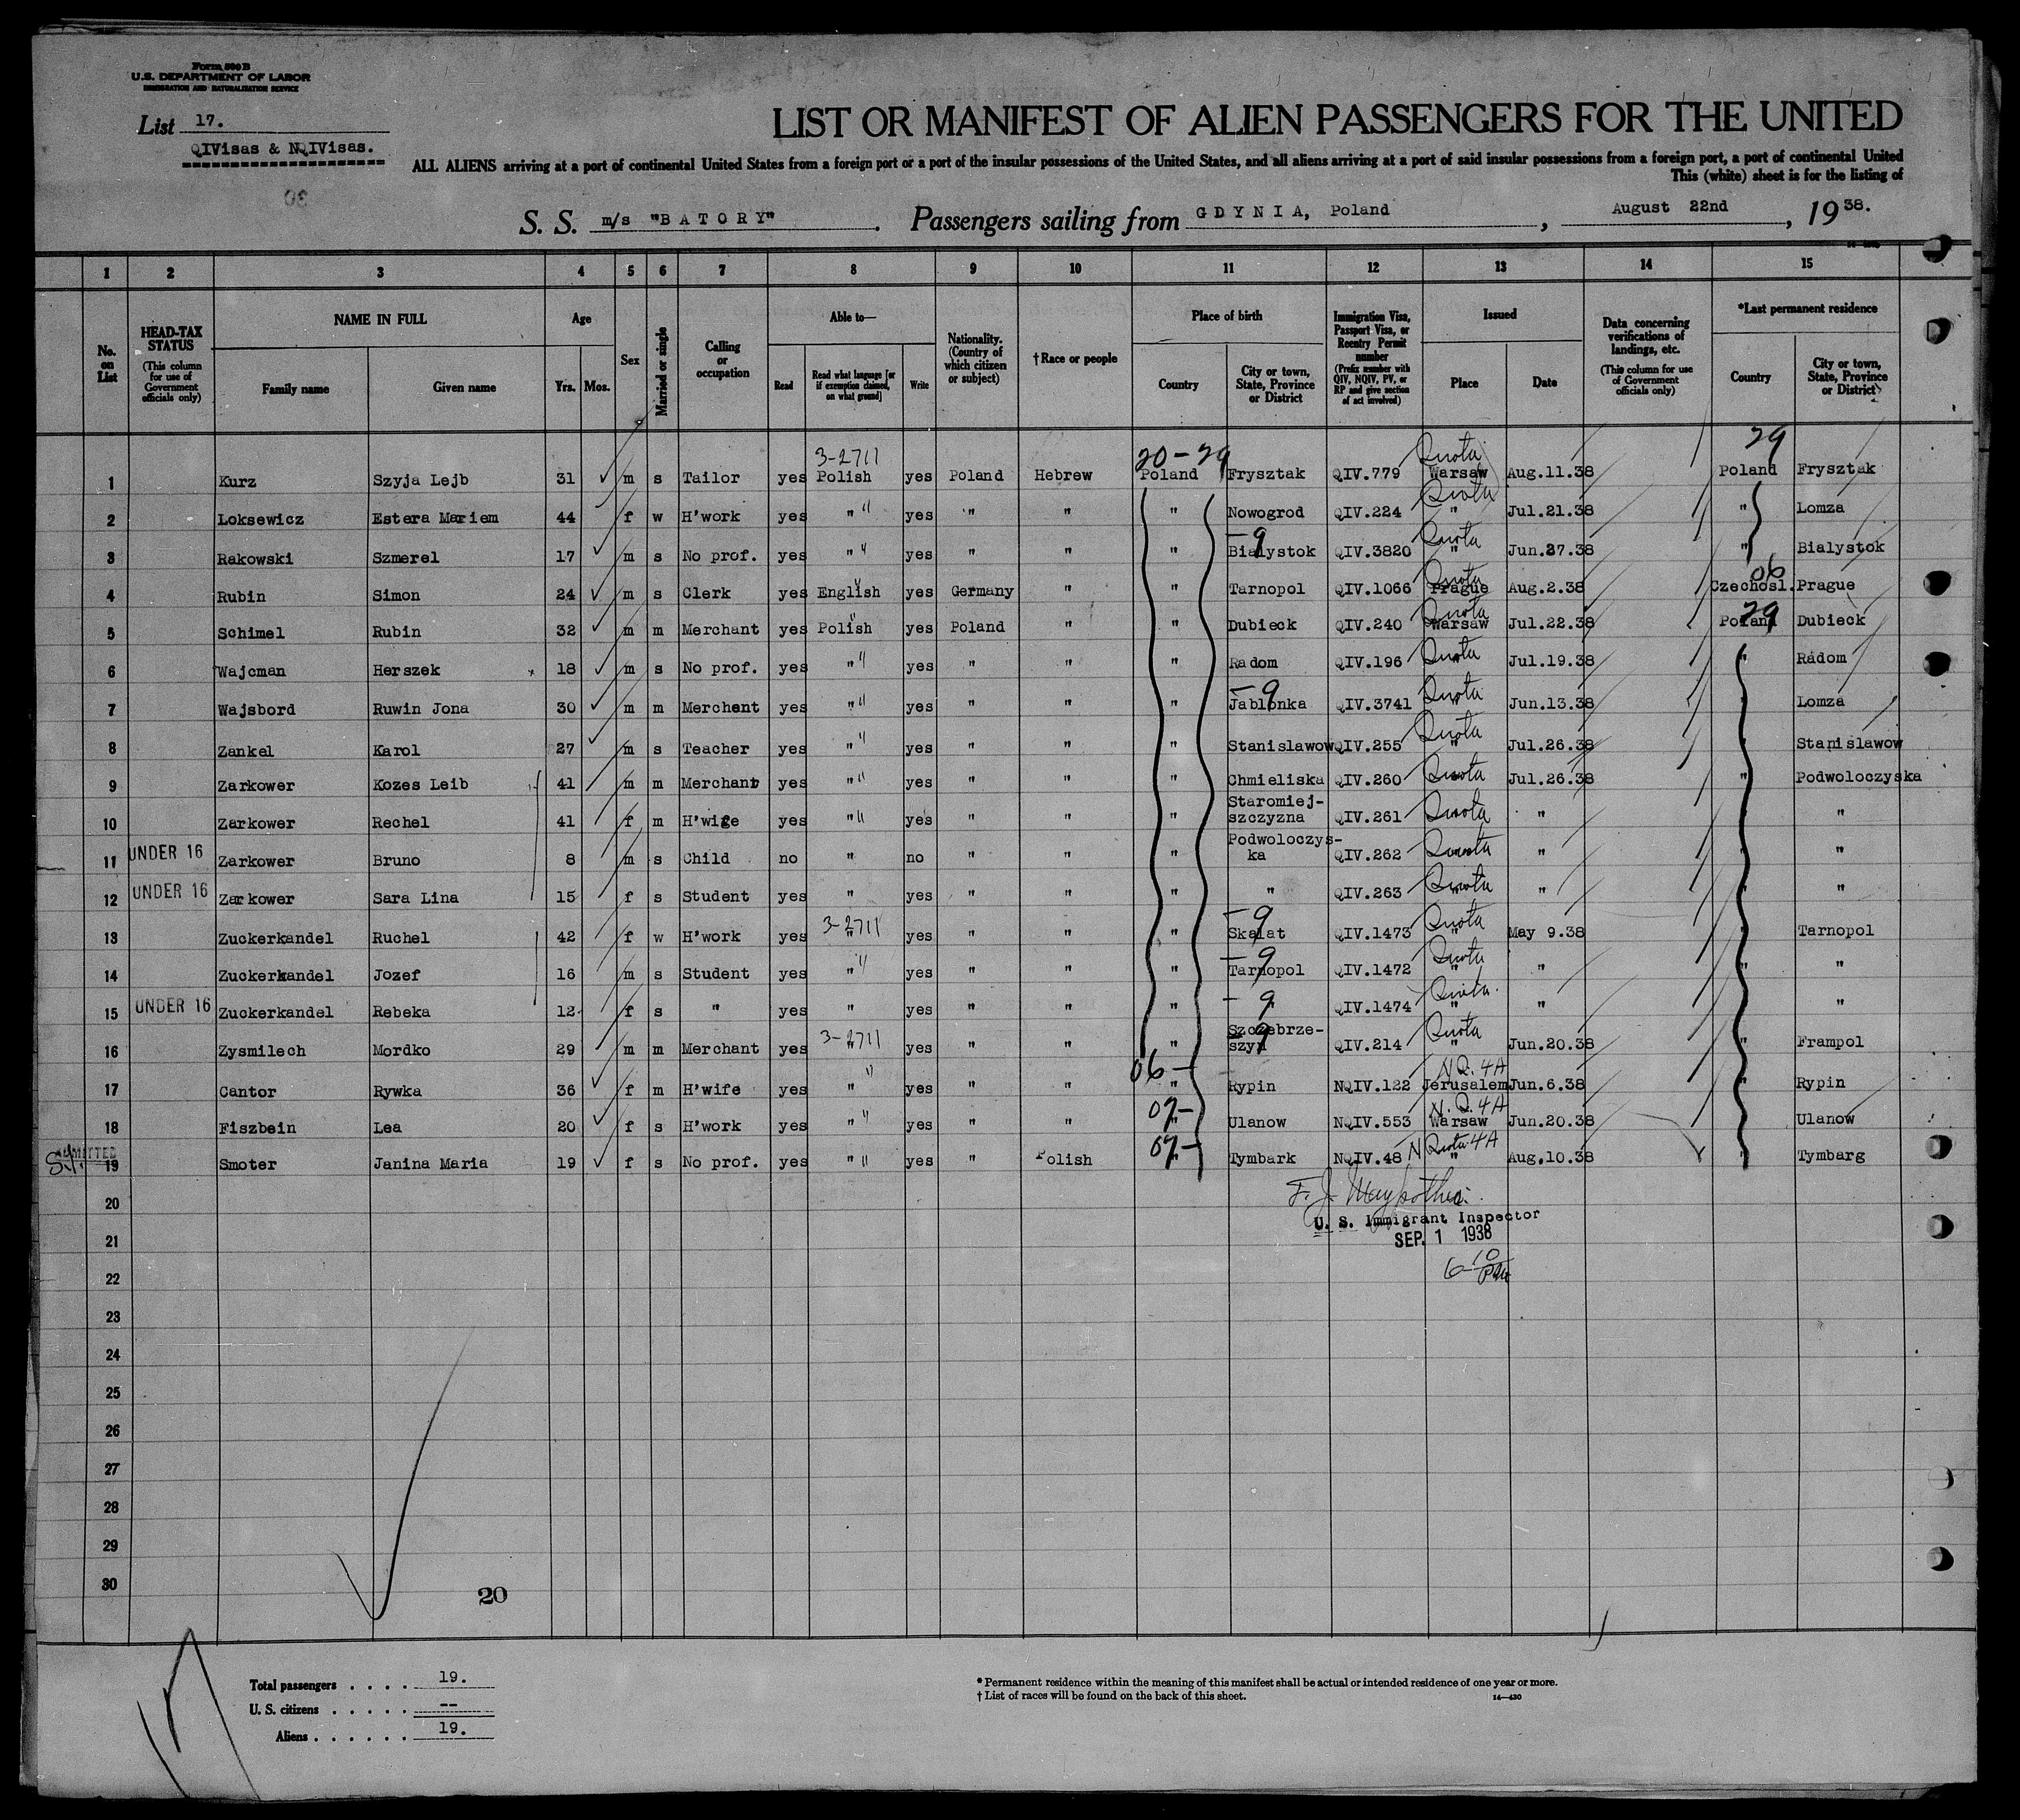 Form 500 B
U.S. DEPARTMENT OF LABOR
IMMIGRATION AND NATURALIZATION SERVICE
List 17.
QIVisas & NQIVisas.
30
LIST OR MANIFEST OF ALIEN PASSENGERS FOR THE UNITED
ALL ALIENS arriving at a port of continental United States from a foreign port or a port of the insular possessions of the United States, and all aliens arriving at a port of said insular possessions from a foreign port, a port of continental United
This (white) sheet is for the listing of
S. S. m/s "BATORY" . Passengers sailing from GDYNIA, Poland , August 22nd , 19 38.
1 2 3 4 5 6 7 8 9 10 11 12 13 14 15
No. on List
HEAD-TAX STATUS (This column for use of Government officials only)
NAME IN FULL
Family name Given name
Age
Yrs. Mos.
Sex
Married or single
Calling or occupation
Able to—
Read Read what language [or if exemption claimed, on what ground] Write
Nationality. (Country of which citizen or subject)
†Race or people
Place of birth
Country City or town, State, Province or District
Immigration Visa, Passport Visa, or Reentry Permit number (Prefix number with QIV, NQIV, PV, or RP and give section of act involved)
Issued
Place Date
Data concerning verifications of landings, etc. (This column for use of Government officials only)
*Last permanent residence
Country City or town, State, Province or District
3-2711 20-29 Quota 29
1 Kurz Szyja Lejb 31 m s Tailor yes Polish yes Poland Hebrew Poland Frysztak QIV.779 Warsaw Aug.11.38 Poland Frysztak
2 Loksewicz Estera Mariem 44 f w H'work yes " " yes " " " Nowogrod QIV.224 Quota " Jul.21.38 " Lomza
3 Rakowski Szmerel 17 m s No prof. yes " " yes " " " -9 Bialystok QIV.3820 Quota " Jun.27.38 " Bialystok
4 Rubin Simon 24 m s Clerk yes English " yes Germany " " Tarnopol QIV.1066 Quota Prague Aug.2.38 06 Czechosl. Prague
5 Schimel Rubin 32 m m Merchant yes Polish " yes Poland " " Dubieck QIV.240 Quota Warsaw Jul.22.38 29 Poland Dubieck
6 Wajcman Herszek 18 m s No prof. yes " " yes " " " Radom QIV.196 Quota " Jul.19.38 " Radom
7 Wajsbord Ruwin Jona 30 m m Merchent yes " " yes " " " -9 Jablonka QIV.3741 Quota " Jun.13.38 " Lomza
8 Zankel Karol 27 m s Teacher yes " " yes " " " Stanislawow QIV.255 Quota " Jul.26.38 " Stanislawow
9 Zarkower Kozes Leib 41 m m Merchant yes " " yes " " " Chmieliska QIV.260 Quota " Jul.26.38 " Podwoloczyska
10 Zarkower Rechel 41 f m H'wife yes " " yes " " " Staromiej-szczyzna QIV.261 Quota " " " "
11 UNDER 16 Zarkower Bruno 8 m s Child no " no " " " Podwoloczys-ka QIV.262 Quota " " " "
12 UNDER 16 Zarkower Sara Lina 15 f s Student yes " yes " " " " QIV.263 Quota " " " "
13 Zuckerkandel Ruchel 42 f w H'work yes 3-2711 " yes " " " -9 Skalat QIV.1473 Quota " May 9.38 " Tarnopol
14 Zuckerkandel Jozef 16 m s Student yes " " yes " " " -9 Tarnopol QIV.1472 Quota " " " "
15 UNDER 16 Zuckerkandel Rebeka 12 f s " yes " yes " " " -9 " QIV.1474 Quota " " " "
16 Zysmilech Mordko 29 m m Merchant yes 3-2711 " yes " " " Szczebrze-szyn 9 QIV.214 Quota " Jun.20.38 " Frampol
17 Cantor Rywka 36 f m H'wife yes " " yes " " 06- " Rypin NQIV.122 N.Q. 4A Jerusalem Jun.6.38 " Rypin
18 Fiszbein Lea 20 f s H'work yes " " yes " " 07- " Ulanow NQIV.553 N.Q. 4A Warsaw Jun.20.38 " Ulanow
S.I. ADMITTED 19 Smoter Janina Maria 19 f s No prof. yes " " yes " Polish 07- " Tymbark NQIV.48 N Quota 4A " Aug.10.38 " Tymbarg
20
U. S. Immigrant Inspector
21
SEP. 1 1938
22
23
24
25
26
27
28
29
30
20
Total passengers . . . . 19.
U. S. citizens . . . . . --
Aliens . . . . . . 19.
* Permanent residence within the meaning of this manifest shall be actual or intended residence of one year or more.
† List of races will be found on the back of this sheet.
14—430